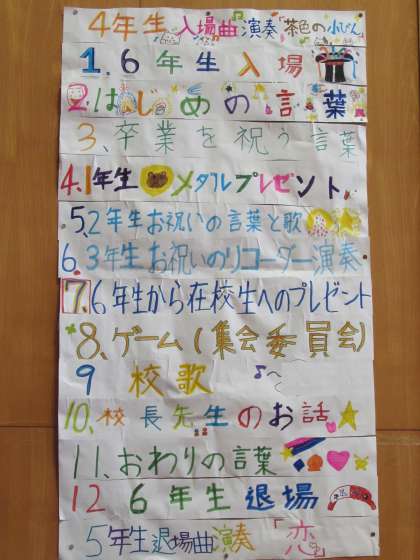 4年生入場曲演奏「茶色の小びん」
1.6年生入場
2.はじめの言葉
3、卒業を祝う言葉
4.1年生メダルプレゼント
5.2年生お祝いの言葉と歌
6.3年生お祝いのリコーダー演奏
7.6年生から在校生へのプレゼント
8、ゲーム(集会委員会)
9 校歌
10.校長先生のお話
11、おわりの言葉
12 6年生退場
5年生退場曲演奏「恋」